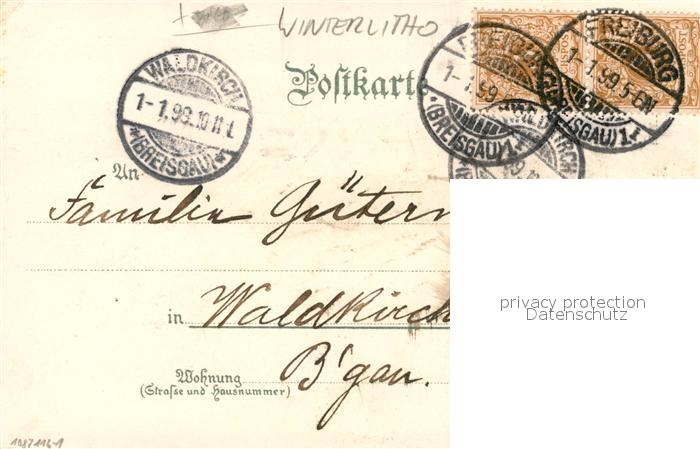 WINTERLITHO
Postkarte
WALDKIRCH
1-1.99.10 11-V.
*(BREISGAU)*
FREIBURG
1-1.99
(BREISGAU)1.*
FREIBURG
1-1.99.5-6N
(BREISGAU)1.*
An
Familie Güterm
privacy protection
Datenschutz
in Waldkirch
B'gau.
Wohnung
(Straße und Hausnummer)
1087116-1